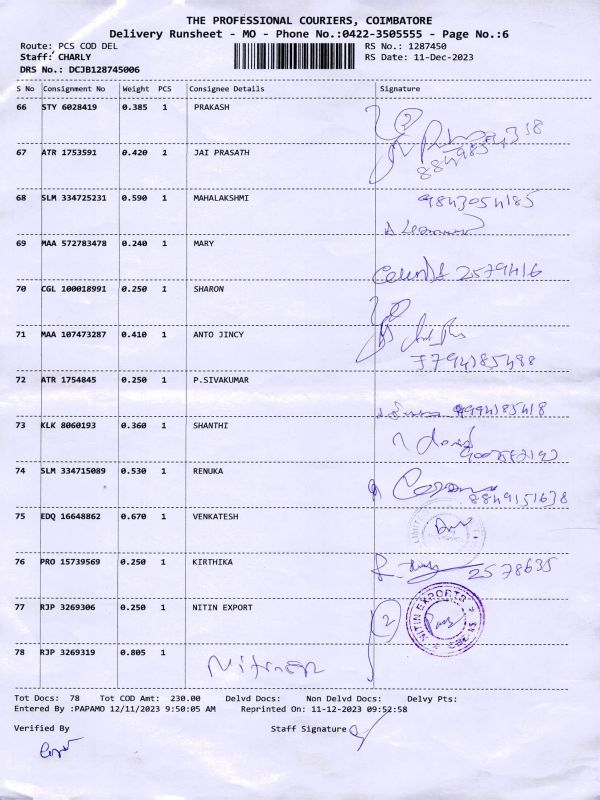 THE PROFESSIONAL COURIERS, COIMBATORE
Delivery Runsheet - MO - Phone No.:0422-3505555 - Page No.:6
Route: PCS COD DEL RS No.: 1287450
Staff: CHARLY RS Date: 11-Dec-2023
DRS No.: DCJB128745006
S No Consignment No Weight PCS Consignee Details Signature
66 STY 6028419 0.385 1 PRAKASH
67 ATR 1753591 0.420 1 JAI PRASATH
68 SLM 334725231 0.590 1 MAHALAKSHMI 9843054185
69 MAA 572783478 0.240 1 MARY 2579416
70 CGL 100018991 0.250 1 SHARON
71 MAA 107473287 0.410 1 ANTO JINCY
72 ATR 1754845 0.250 1 P.SIVAKUMAR
73 KLK 8060193 0.360 1 SHANTHI
74 SLM 334715089 0.530 1 RENUKA 8849151638
75 EDQ 16648862 0.670 1 VENKATESH
76 PRO 15739569 0.250 1 KIRTHIKA 2578635
77 RJP 3269306 0.250 1 NITIN EXPORT 2 NITIN EXPORTS
78 RJP 3269319 0.805 1
Tot Docs: 78 Tot COD Amt: 230.00 Delvd Docs: Non Delvd Docs: Delvy Pts:
Entered By :PAPAMO 12/11/2023 9:50:05 AM Reprinted On: 11-12-2023 09:52:58
Verified By Staff Signature